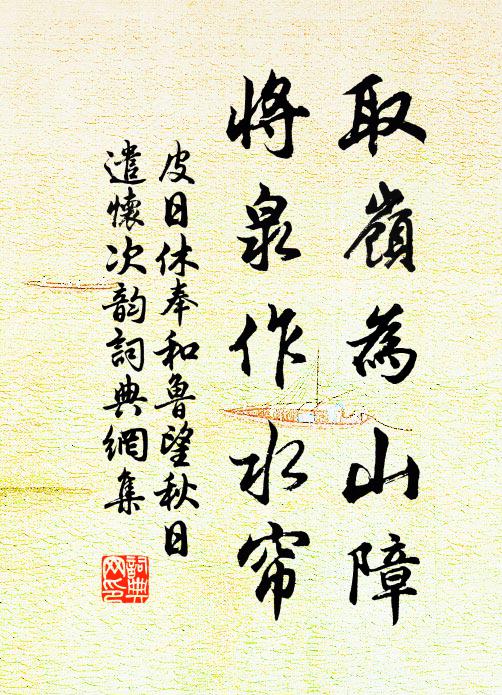 取嶺為山障
將泉作水帘
皮日休奉和魯望秋日
遣懷次韵詞典網集
詞典
网印